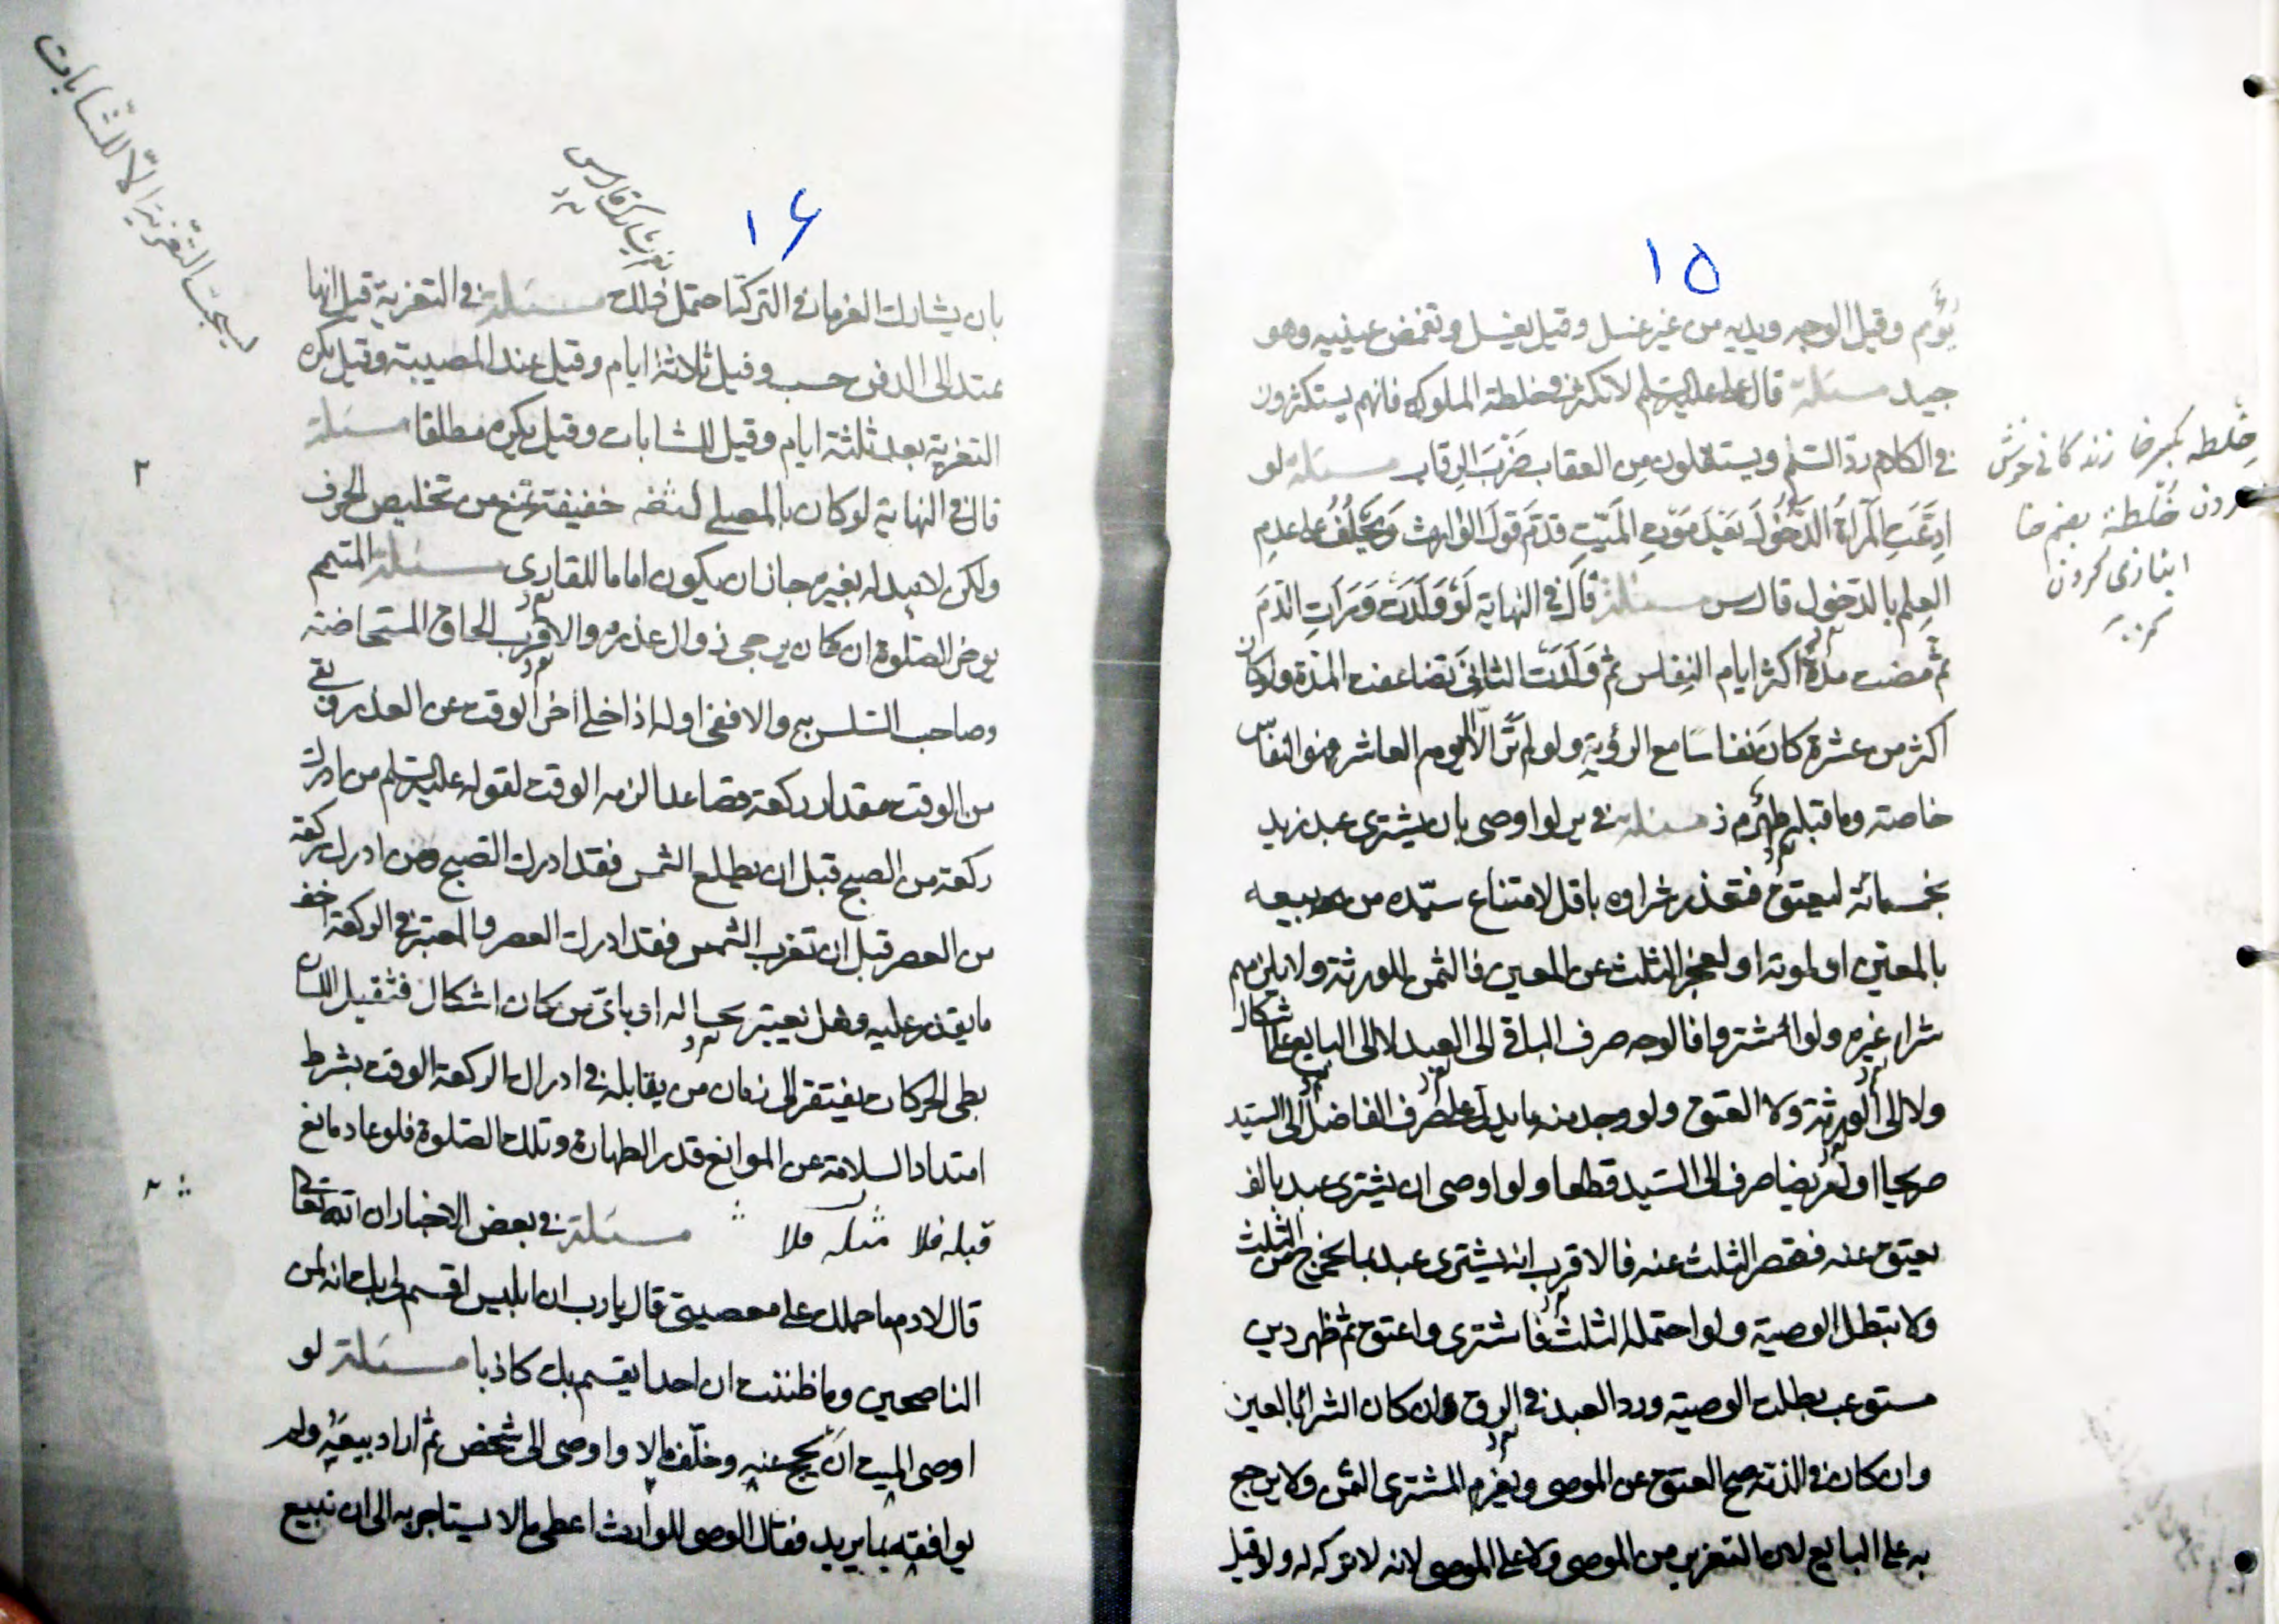 ١٥
يؤمم وقيل الوجه ويديه من غير غسل وقيل يغسل وتغمض عينيه وهو
جيد مسئلة قال عليه السلم لا تكثر مخلطة الملوك فانهم يستكثرون
في الكلام رد السلم ويستقلون من العقاب ضرب الرقاب مسئلة لو
ادعت المرأة الدخول بعد موت الميت قدم قول الوارث ويحلف على عدم
العلم بالدخول مسئلة قال في النهاية لو ولدت ورات الدم
ثم مضت مدة اكثر ايام النفاس ثم ولدت الثاني تضاعفت المدة ولو كان
اكثر من عشرة كان نفاسا مع الرؤية ولو لم تر الا اليوم العاشر فهو النفاس
خاصة وما قبله طهر مسئلة لو اوصى بان يشترى عبد زيد
بخمسمائة ليعتق فتعذر شراوه باقل لامتناع سيده من بيعه
بالمعين او لموته او لعجز الثلث عن المعين فالثمن للورثة ولا يلزمهم
شراء غيره ولو اشتروا فالوجه صرف الباقي الى العبد لا الى البايع على اشكال
ولا الى الورثة ولا العتق ولو وجد منه ما يدل على صرف الفاضل الى السيد
صريحا او تعريضا صرف الى السيد قطعا ولو اوصى ان يشترى عبد بالف
يعتق عنه فقصر الثلث عنه فالاقرب انه يشترى عبد بما يخرج من الثلث
ولا تبطل الوصية ولو احتمله الثلث فاشترى واعتق ثم ظهر دين
مستوعب بطلت الوصية ورد العبد في الرق ان كان الشرائ بالعين
وان كان في الذمة صح العتق عن الموصى ويغرم المشترى الثمن ولا يرجع
به على البايع لان التغرير من الموصى ولا على الموصى لانه لا تركه له ولو قيل
خلطه بكسر خا زندگانى خوش
كردن خلطة بضم خا
انبازى كردن
١٦
بان يشارك الغرماء في التركة احتمل ذلك مسئلة في التعزية قيل انها
تمتد الى الدفن حسب وقيل ثلاثة ايام وقيل عند المصيبة وقيل يكره
التعزية بعد ثلثة ايام وقيل للشابات وقيل يكره مطلقا مسئلة
قال في النهاية لو كان بالمصلى لثغة خفيفة تمنع من تخليص الحرف
ولكن لا يبدله بغيره جاز ان يكون اماما للقارى مسئلة المتيمم
يوخر الصلوة ان كان يرجى زوال عذره والاقرب الحاق المستحاضة
وصاحب السلس به والا ففى اوله اذا خلى اخر الوقت عن العذر وبقى
من الوقت مقدار ركعة فصاعدا لزمه الوقت لقوله عليه السلم من ادرك
ركعة من الصبح قبل ان يطلع الشمس فقد ادرك الصبح ومن ادرك ركعة
من العصر قبل ان تغرب الشمس فقد ادرك العصر والمعتبر في الركعة اخف
ما يقدر عليه وهل يعتبر بحاله او باى من كان اشكال فثقيل اللسان
بطى الحركات يفتقر الى زمان من يقابله في ادراك الركعة الوقت بشرط
امتداد السلامة عن الموانع قدر الطهارة وتلك الصلوة فلو عاد مانع
قبله فلا مسئلة في بعض الاخبار ان الله تعالى
قال لادم ما حملك على معصيتى قال يا رب ان ابليس اقسم لى بك انه لمن
الناصحين وما ظننت ان احدا يقسم بك كاذبا مسئلة لو
اوصى الميت ان يحج عنه وخلف مالا واوصى الى شخص ثم اراد بيعه ولم
يوافقه بما يريد فقال الوصى للوارث اعطى مالا يستاجر به الى ان نبيع
يستحب التعزية الا للشابات